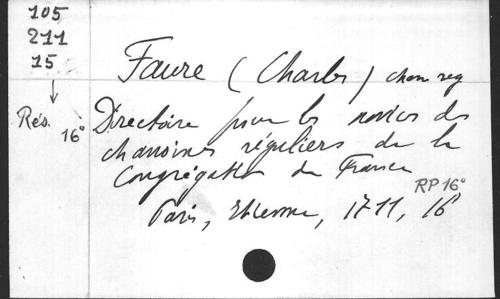 105
211
15
Faure (Charles) chan reg
Rés. 16°
Directoire pour les novices des
chanoines réguliers de la
Congrégation de France
RP 16°
Paris, Etienne, 1711, 16°